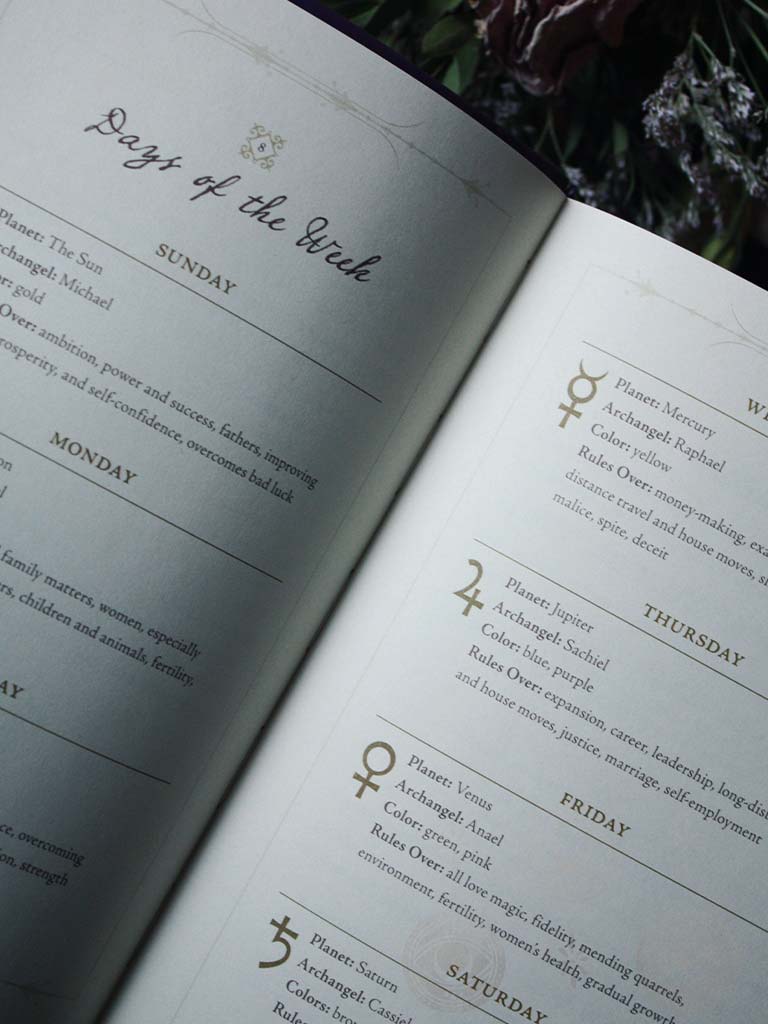 8
Days of the Week
SUNDAY
Planet: The Sun
Michael
gold
Over: ambition, power and success, fathers, improving
and self-confidence, overcomes bad luck
MONDAY
family matters, women, especially
children and animals, fertility,
overcoming
strength
Planet: Mercury
Archangel: Raphael
Color: yellow
Rules Over: money-making,
distance travel and house moves,
malice, spite, deceit
THURSDAY
Planet: Jupiter
Archangel: Sachiel
Color: blue, purple
Rules Over: expansion, career, leadership,
and house moves, justice, marriage, self-employment
FRIDAY
Planet: Venus
Archangel: Anael
Color: green, pink
Rules Over: all love magic, fidelity, mending quarrels,
environment, fertility, women's health, gradual growth
SATURDAY
Planet: Saturn
Archangel: Cassiel
Colors:
Rules